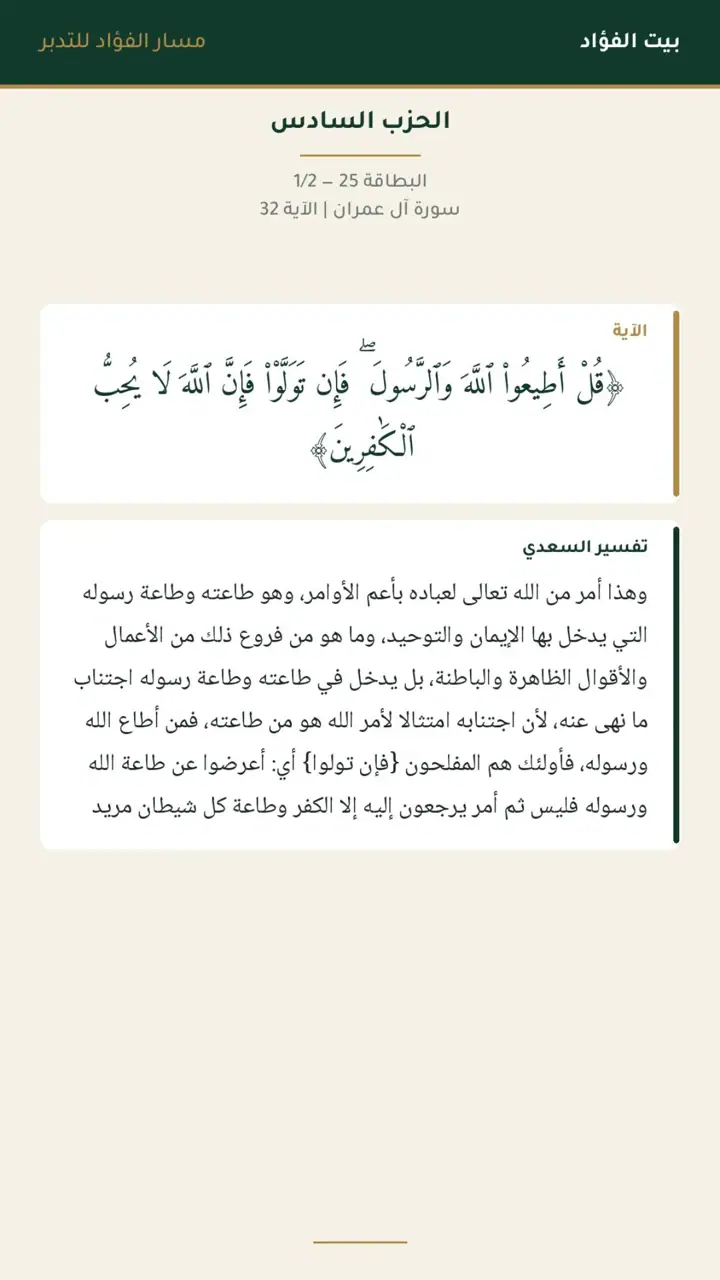 بيت الفؤاد
مسار الفؤاد للتدبر
الحزب السادس
البطاقة 25 – 1/2
سورة آل عمران | الآية 32
الآية
﴿قُلْ أَطِيعُوا۟ ٱللَّهَ وَٱلرَّسُولَ ۖ فَإِن تَوَلَّوْا۟ فَإِنَّ ٱللَّهَ لَا يُحِبُّ
ٱلْكَـٰفِرِينَ﴾
تفسير السعدي
وهذا أمر من الله تعالى لعباده بأعم الأوامر، وهو طاعته وطاعة رسوله
التي يدخل بها الإيمان والتوحيد، وما هو من فروع ذلك من الأعمال
والأقوال الظاهرة والباطنة، بل يدخل في طاعته وطاعة رسوله اجتناب
ما نهى عنه، لأن اجتنابه امتثالا لأمر الله هو من طاعته، فمن أطاع الله
ورسوله، فأولئك هم المفلحون {فإن تولوا} أي: أعرضوا عن طاعة الله
ورسوله فليس ثم أمر يرجعون إليه إلا الكفر وطاعة كل شيطان مريد